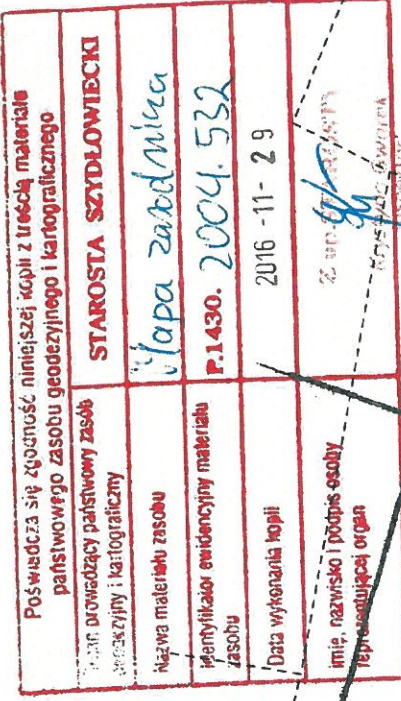 Poświadcza się zgodność niniejszej kopii z treścią materiału
państwowego zasobu geodezyjnego i kartograficznego
prowadzący państwowy zasób
i kartograficzny
STAROSTA SZYDŁOWIECKI
Nazwa materiału zasobu
Mapa zasadnicza
Identyfikator ewidencyjny materiału
zasobu
P.1430. 2004.532
Data wykonania kopii
2016 -11- 29
imię, nazwisko i podpis osoby
reprezentującej organ